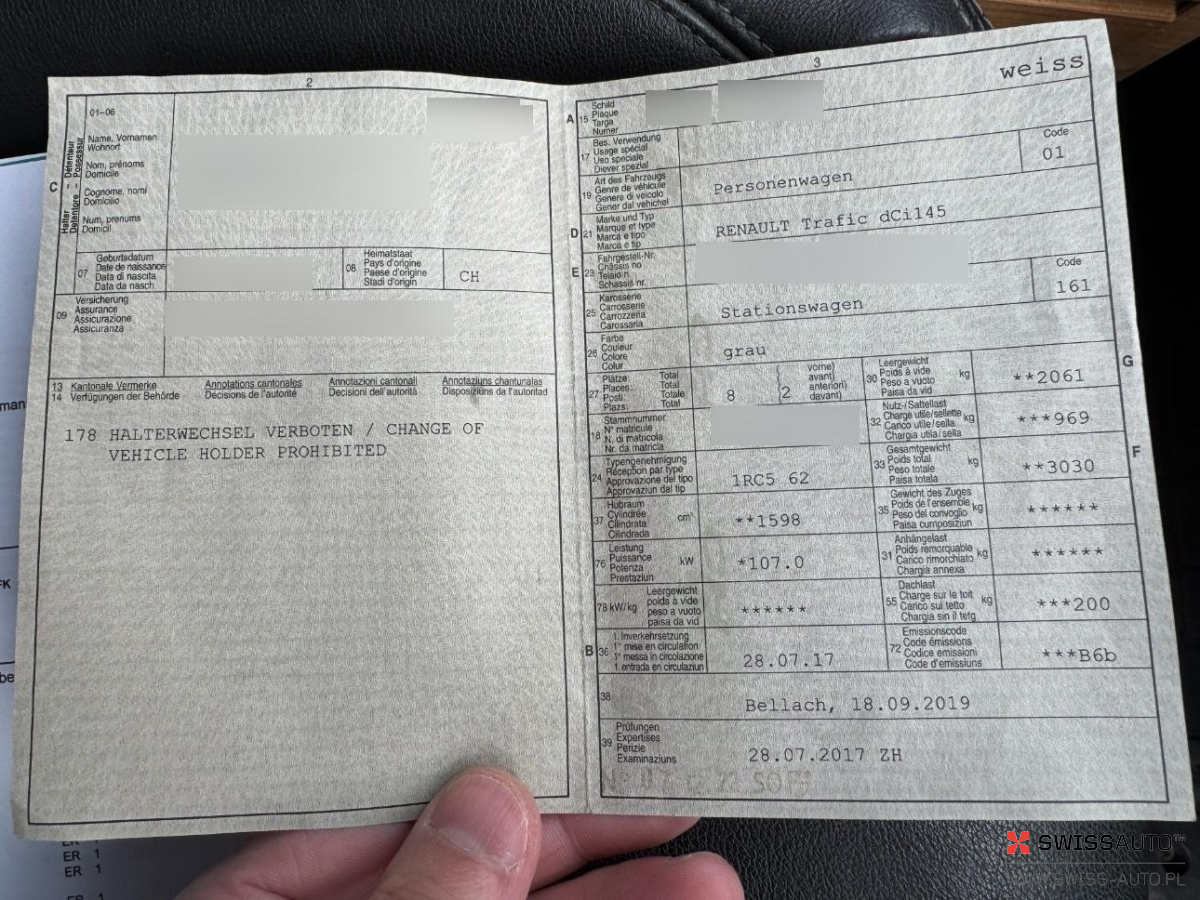 2
01-06
C
Halter - Détenteur
Detentore - Possessur
Name, Vornamen
Wohnort
Nom, prénoms
Domicile
Cognome, nomi
Domicilio
Num, prenums
Domicil
07
Geburtsdatum
Date de naissance
Data di nascita
Data da nasch.
08
Heimatstaat
Pays d'origine
Paese d'origine
Stadi d'origin
CH
09
Versicherung
Assurance
Assicurazione
Assicuranza
13
14
Kantonale Vermerke
Verfügungen der Behörde
Annotations cantonales
Décisions de l'autorité
Annotazioni cantonali
Decisioni dell'autorità
Annotaziuns chantunalas
Disposiziuns da l'autoritad
178 HALTERWECHSEL VERBOTEN / CHANGE OF
VEHICLE HOLDER PROHIBITED
3
weiss
A
15
Schild
Plaque
Targa
Numer
17
Bes. Verwendung
Usage spécial
Uso speciale
Diever spezial
19
Art des Fahrzeugs
Genre de véhicule
Genere di veicolo
Gener dal vehichel
Personenwagen
Code
01
D
21
Marke und Typ
Marque et type
Marca e tipo
Marca e tip
RENAULT Trafic dCi145
E
23
Fahrgestell-Nr.
Châssis no
Telaio n.
Schassis nr.
25
Karosserie
Carrosserie
Carrozzeria
Carossaria
Stationswagen
Code
161
26
Farbe
Couleur
Colore
Colur
grau
27
Plätze:
Places:
Posti:
Plazs:
Total
Total
Totale
Total
8
2
vorne)
avant)
anteriori)
davant)
G
30
Leergewicht
Poids à vide
Peso a vuoto
Paisa da vid
kg
**2061
18
Stammnummer
N° matricule
N. di matricola
Nr. da matricla
32
Nutz-/Sattellast
Charge utile/sellette
Carico utile/sella
Chargia utila/sella
kg
***969
24
Typengenehmigung
Réception par type
Approvazione del tipo
Approvaziun dal tip
1RC5 62
F
33
Gesamtgewicht
Poids total
Peso totale
Paisa totala
kg
**3030
37
Hubraum
Cylindrée
Cilindrata
Cilindrada
cm³
**1598
35
Gewicht des Zuges
Poids de l'ensemble
Peso del convoglio
Paisa cumposiziun
kg
******
76
Leistung
Puissance
Potenza
Prestaziun
kW
*107.0
31
Anhängelast
Poids remorquable
Carico rimorchiato
Chargia annexa
kg
******
78 kW/kg
Leergewicht
poids à vide
peso a vuoto
paisa da vid
******
55
Dachlast
Charge sur le toit
Carico sul tetto
Chargia sin il tetg
kg
***200
B
36
1. Inverkehrsetzung
1re mise en circulation
1a messa in circolazione
1. entrada en circulaziun
28.07.17
72
Emissionscode
Code émissions
Codice emissioni
Code d'emissiuns
***B6b
38
Bellach, 18.09.2019
39
Prüfungen
Expertises
Perizie
Examinaziuns
28.07.2017 ZH
man
FK
be
ER 1
ER 1
ER 1
SWISSAUTO™
SWISS-AUTO.PL